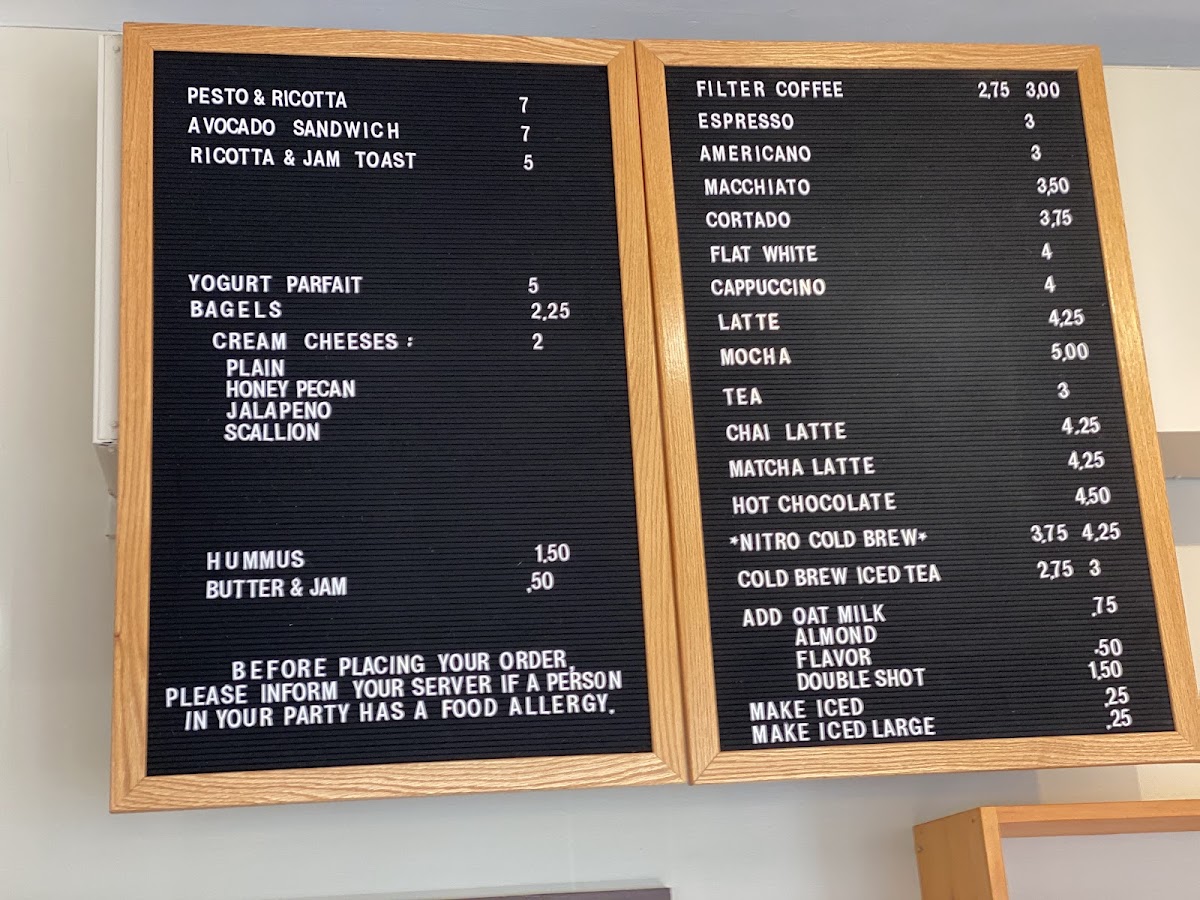 PESTO & RICOTTA 7
AVOCADO SANDWICH 7
RICOTTA & JAM TOAST 5
YOGURT PARFAIT 5
BAGELS 2,25
CREAM CHEESES : 2
PLAIN
HONEY PECAN
JALAPENO
SCALLION
HUMMUS 1,50
BUTTER & JAM .50
BEFORE PLACING YOUR ORDER,
PLEASE INFORM YOUR SERVER IF A PERSON
IN YOUR PARTY HAS A FOOD ALLERGY.
FILTER COFFEE 2,75 3,00
ESPRESSO 3
AMERICANO 3
MACCHIATO 3,50
CORTADO 3,75
FLAT WHITE 4
CAPPUCCINO 4
LATTE 4,25
MOCHA 5,00
TEA 3
CHAI LATTE 4.25
MATCHA LATTE 4,25
HOT CHOCOLATE 4,50
*NITRO COLD BREW* 3,75 4,25
COLD BREW ICED TEA 2,75 3
ADD OAT MILK .75
ALMOND
FLAVOR .50
DOUBLE SHOT 1,50
MAKE ICED .25
MAKE ICED LARGE .25